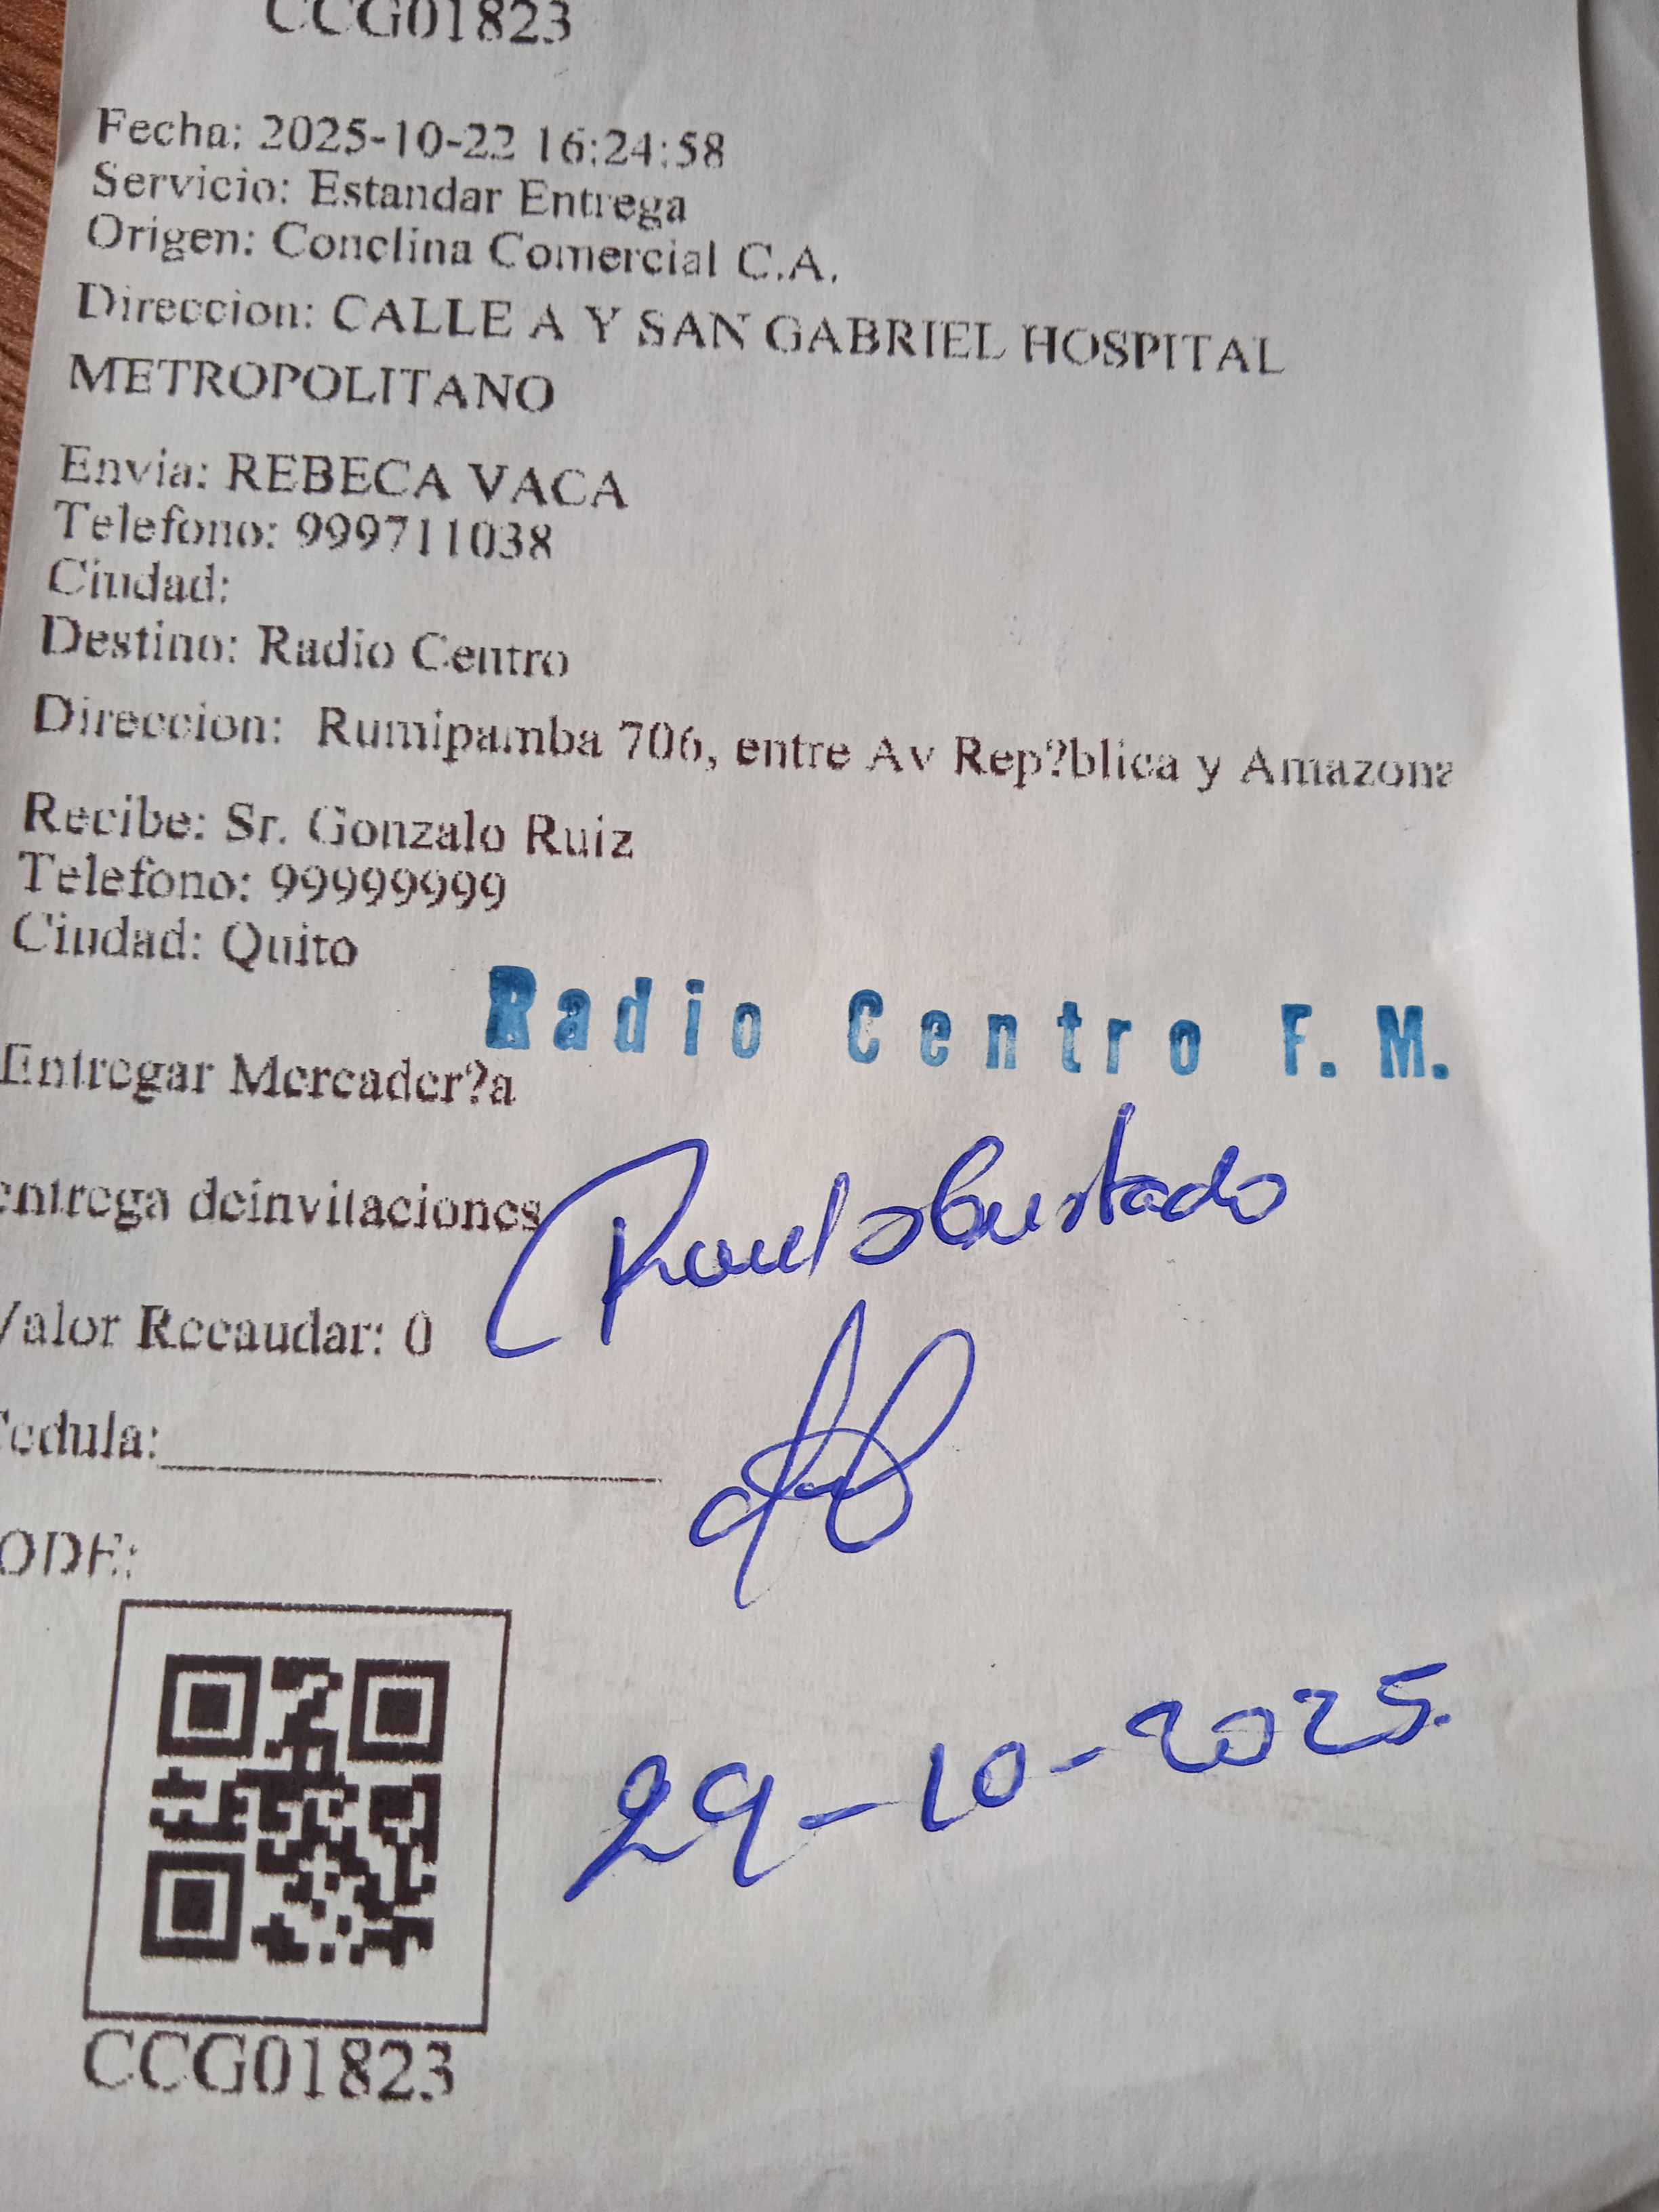 CCG01823
Fecha: 2025-10-22 16:24:58
Servicio: Estandar Entrega
Origen: Conclina Comercial C.A.
Direccion: CALLE A Y SAN GABRIEL HOSPITAL
METROPOLITANO
Envia: REBECA VACA
Telefono: 999711038
Ciudad:
Destino: Radio Centro
Direccion: Rumipamba 706, entre Av Rep?blica y Amazona
Recibe: Sr. Gonzalo Ruiz
Telefono: 99999999
Ciudad: Quito
Radio Centro F.M.
Entregar Mercader?a
entrega deinvitaciones
Valor Recaudar: 0
Cedula:
ODE:
29-10-2025.
CCG01823